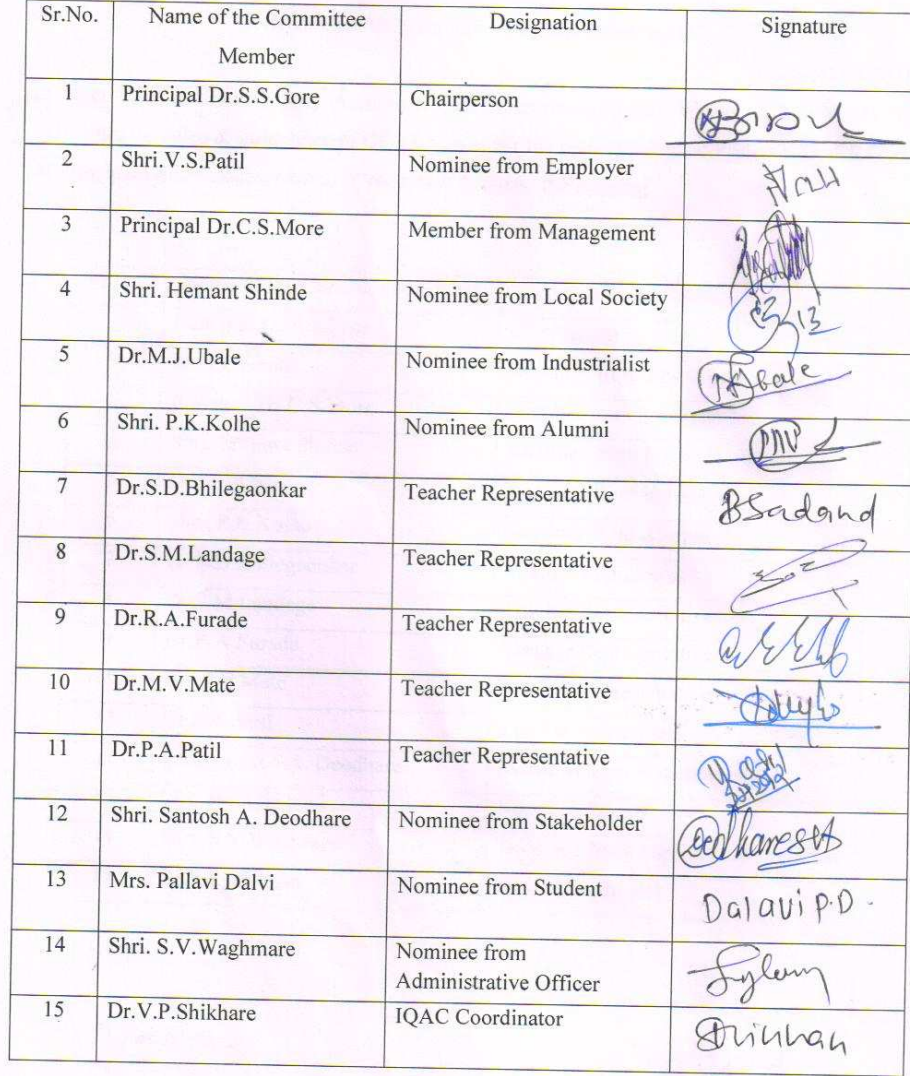 Sr.No. Name of the Committee Member Designation Signature
1 Principal Dr.S.S.Gore Chairperson
2 Shri.V.S.Patil Nominee from Employer
3 Principal Dr.C.S.More Member from Management
4 Shri. Hemant Shinde Nominee from Local Society
5 Dr.M.J.Ubale Nominee from Industrialist
6 Shri. P.K.Kolhe Nominee from Alumni
7 Dr.S.D.Bhilegaonkar Teacher Representative
8 Dr.S.M.Landage Teacher Representative
9 Dr.R.A.Furade Teacher Representative
10 Dr.M.V.Mate Teacher Representative
11 Dr.P.A.Patil Teacher Representative
12 Shri. Santosh A. Deodhare Nominee from Stakeholder
13 Mrs. Pallavi Dalvi Nominee from Student Dalavi P.D.
14 Shri. S.V.Waghmare Nominee from
Administrative Officer
15 Dr.V.P.Shikhare IQAC Coordinator